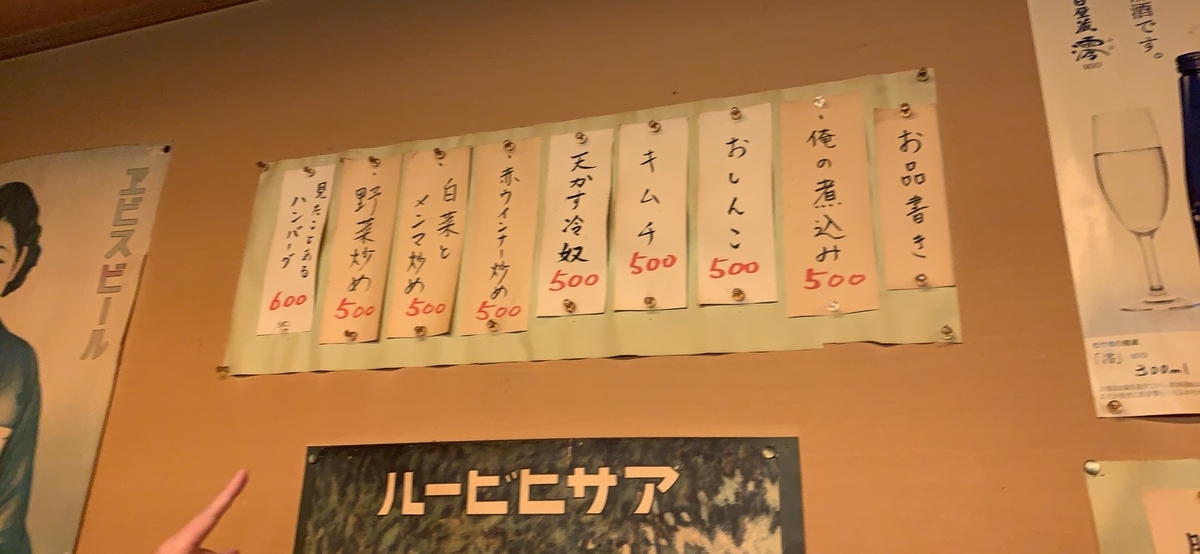 お品書き
俺の煮込み
500
おしんこ
500
キムチ
500
天かす冷奴
500
赤ウインナー炒め
500
白菜と
メンマ炒め
500
野菜炒め
500
見たことある
ハンバーグ
600
ヱビスビール
ルービヒサア
酒です。
澪
「澪」
300ml